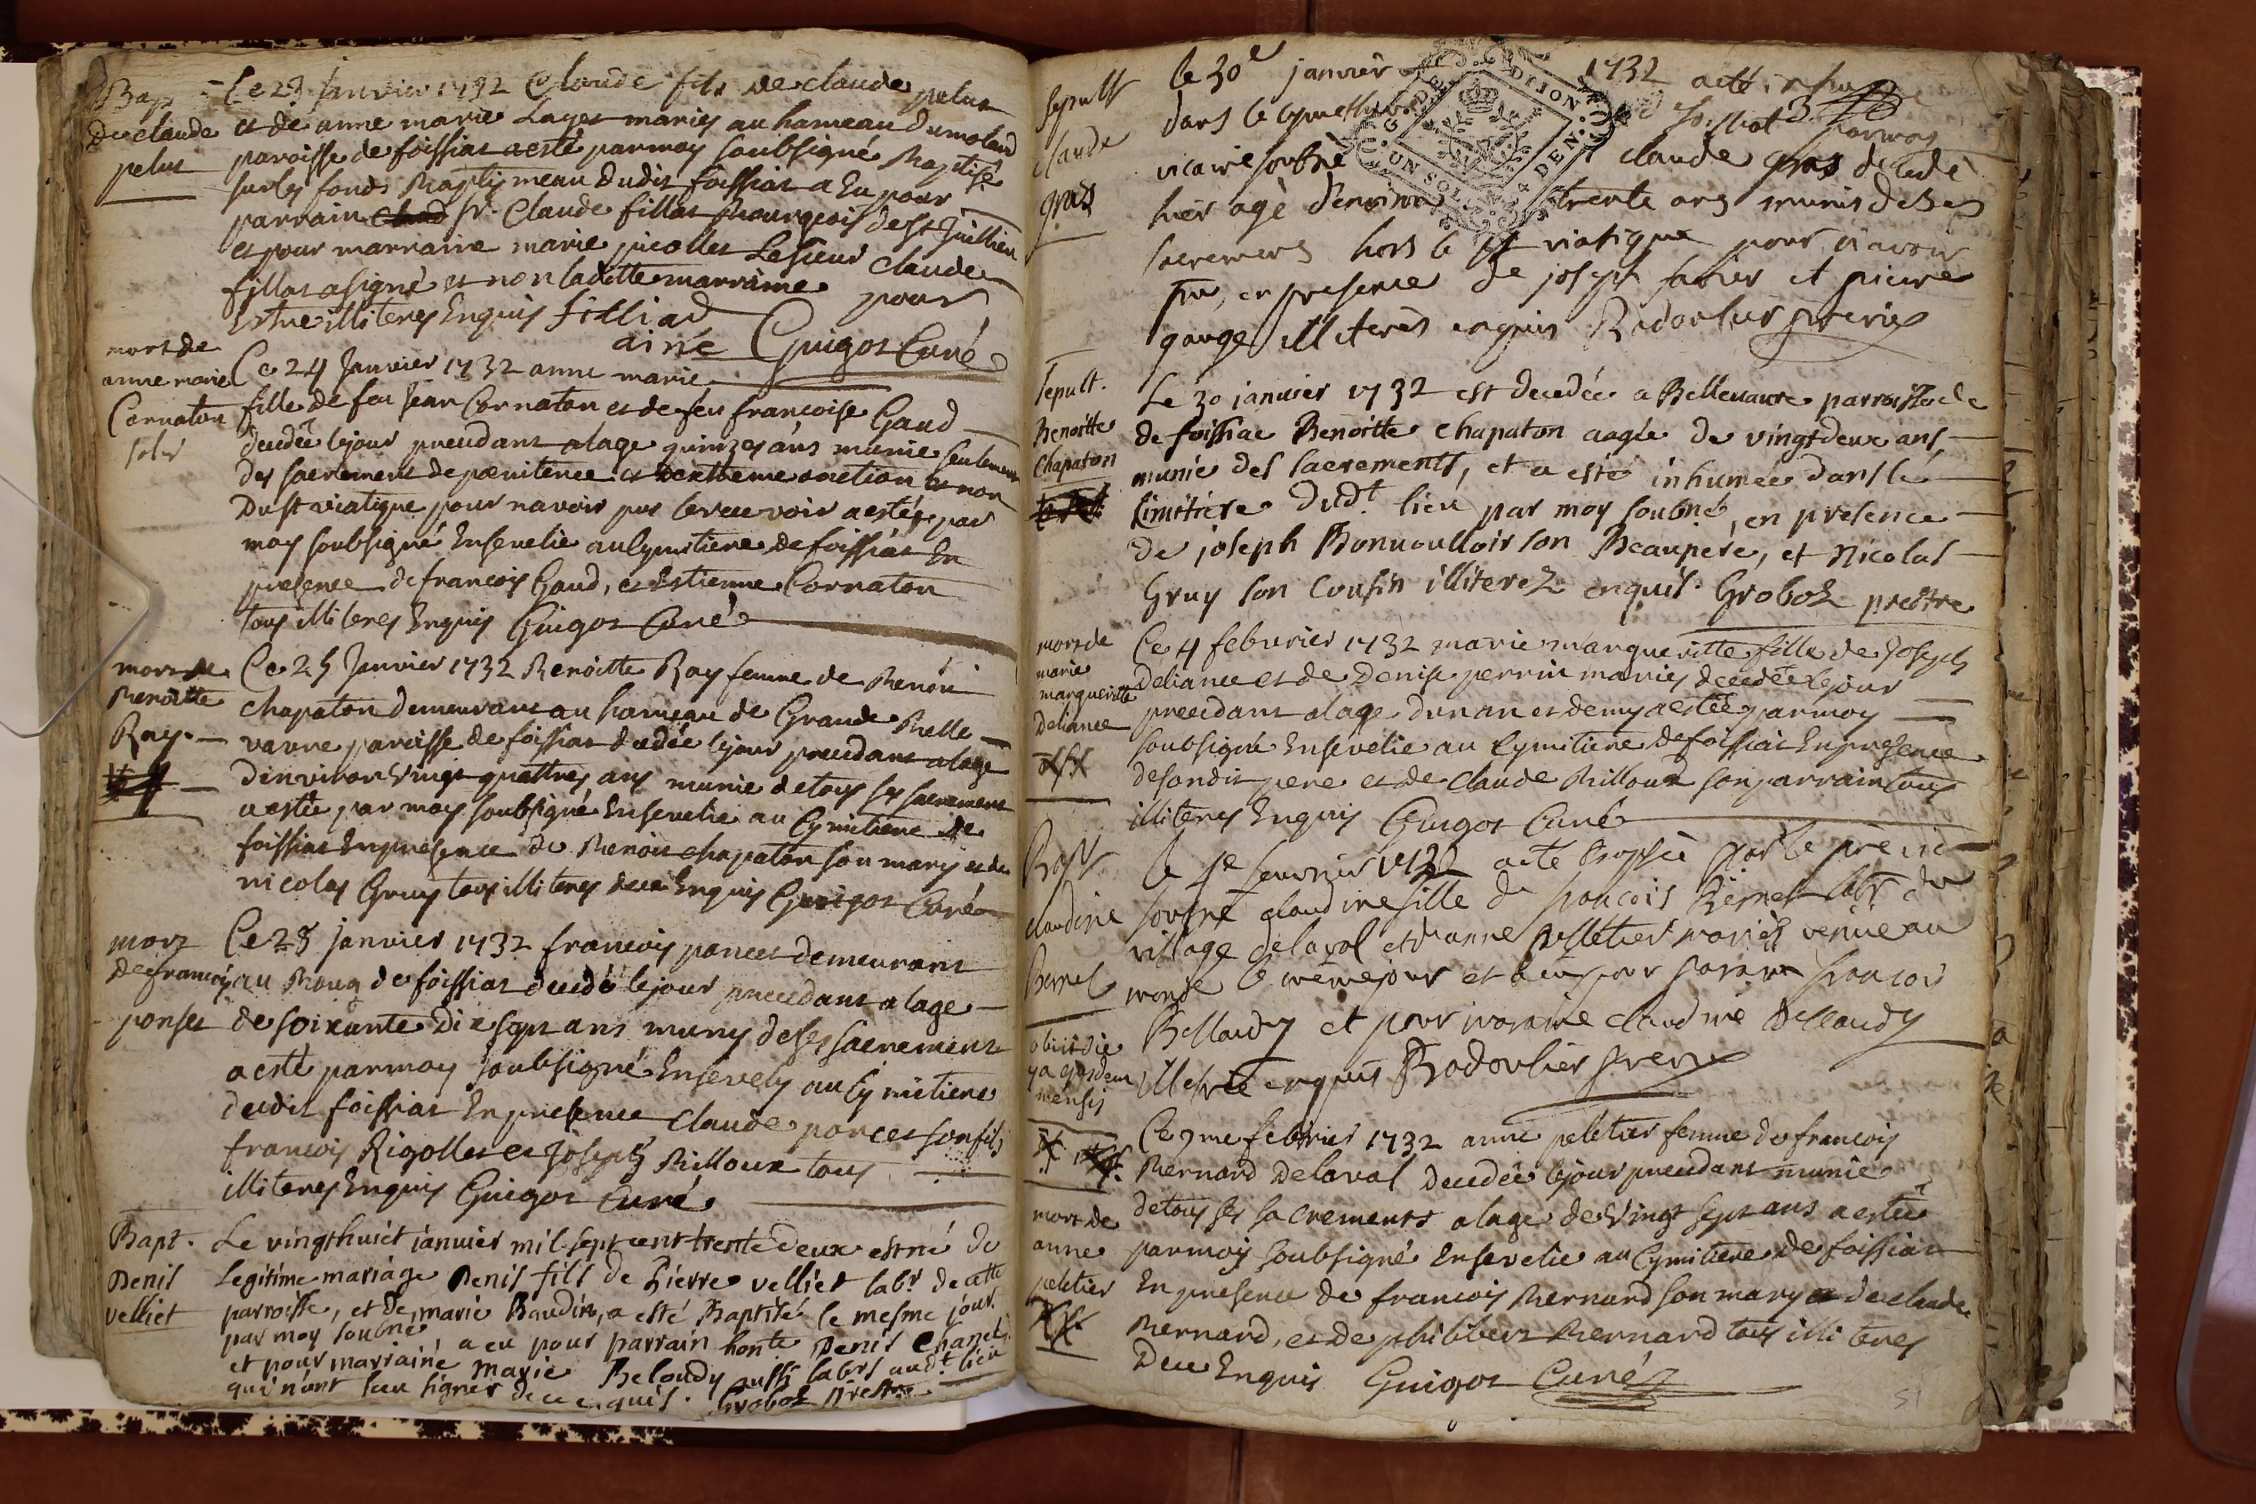 Bap
de claude
pelus
Ce 23 Janvier 1732 Claude fils de claude pelus
et de anne marie Layer mariés au hameau du molard
paroisse de foissiat a esté par moy soubsigné Baptisé
sur les fonds Baptismeau dudit foissiat a Eu pour
parrain sr. Claude fillat Bourgeois de st Jullien
et pour marraine marie picollet Lesieur claude
fillat a signé et non ladtte marraine pour
Estre illiterez Enquis filliad
ainé Guigot Curé
mort de
anne marie
Cornaton
Ce 24 Janvier 1732 anne marie
fille de feu Jean Cornaton et de feu francoise Gaud
decedée le jour precedant a lage quinze ans munie seulement
des sacrement de pœnitence et dextreme onction et non
Du st viatique pour navoir pus le recevoir a estée par
moy soubsigné Ensevelie au Cymitiere de foissiat En
presence de francois Gaud, et Estienne Cornaton
tous illiterez Enquis Guigot Curé
mort de
Benoitte
Ray.
Ce 25 Janvier 1732 Benoitte Ray femme de Benoit
chapaton demeurant au hameau de Grande Belle
vavre paroisse de foissiat decedée le jour precedant a lage
denviron vingt quattres ans munie de tous ses sacrement
a estée par moy soubsigné Ensevelie au Cymitiere de
foissiat En presence de Benoit chapaton son mary et de
nicolas Gruy tous illiterez dece Enquis Guigot Curé
mort
de francois
ponset
Ce 28 janvier 1732 francois poncet demeurant
au Bourg de foissiat decedé le jour precedant a lage
de soixante Dix sept ans muny de ses sacrement
a esté par moy soubsigné Ensevely au Cymitiere
dudit foissiat En presence claude poncet son fils
francois Rigollet et Joseph Billoux tous
illiterez Enquis Guigot Curé
Bapt.
Denis
velliet
Le vingthuict janvier mil sept cent trente deux est né de
Legitime mariage Denis fils de Pierre velliet labr de cette
parroisse, et de marie Baudin, a esté Baptisé le mesme jour
par moy soubné, a eu pour parrain honte Denis Chanel,
et pour marraine marie Beloudy aussi labrs audt. lieu
qui n'ont sceu signer dece enquis. Groboz prestre
sepult
claude
gras
le 30e janvier 1732 a eté
dans le cymettiere
vicaire soubné claude gras decedé
hier agé denviron trente ans munis de ses
sacremens hors le st viatique pour n'avoir
pu, en presence de joseph favier et pierre
gauge illiterés enquis Rodoulier prerix
sepult.
Benoitte
Chapaton
Le 30 janvier 1732 est decedée a Bellevavre parroisse de
de foissiac Benoitte Chapaton aagée de vingtdeux ans,
munie des sacrements, et a esté inhumée dans le
Cimitiere dudt. lieu par moy soubné, en presence
de joseph Bonvoulloir son Beaupere, et Nicolas
Gruy son Cousin illiterez enquis. Groboz prestre
mort de
marie
marguerite
Deliance
Ce 4 febvrier 1732 marie marguerite fille de Joseph
Deliance et de Denise perrin mariés decedée le jour
precedant a lage dun an et demy a estée par moy
soubsigné Ensevelie au Cymitiere de foissiat En presence
de sondit pere et de claude Billoux son parrain tous
illiterez Enquis Guigot Curé
Bapt
claudine
Bernet
obiit die
mensis
le 5e fevrier 1732 a eté Baptisé par le
soubné claudine fille de francois Bernet labr du
village delaval et d'anne pelletier mariés venüe au
monde le meme jour et a eu pour parain francois
Bellaudy et pour maraine claudine Bellaudy
illetré enquis Rodoulier prerix
mort de
anne
peletier
Ce 9me febvrier 1732 anne peletier femme de francois
Bernard Delaval decedée le jour precedant munie
de tous ses sacrements a lage de vingt sept ans a estée
par moy soubsigné Ensevelie au Cymitiere de foissiat
En presence de francois Bernard son mary de claude
Bernard, et de philibert Bernard tous illiterez
Dece Enquis Guigot Curé
51
G. DE DIJON
UN SOL 4 DEN.